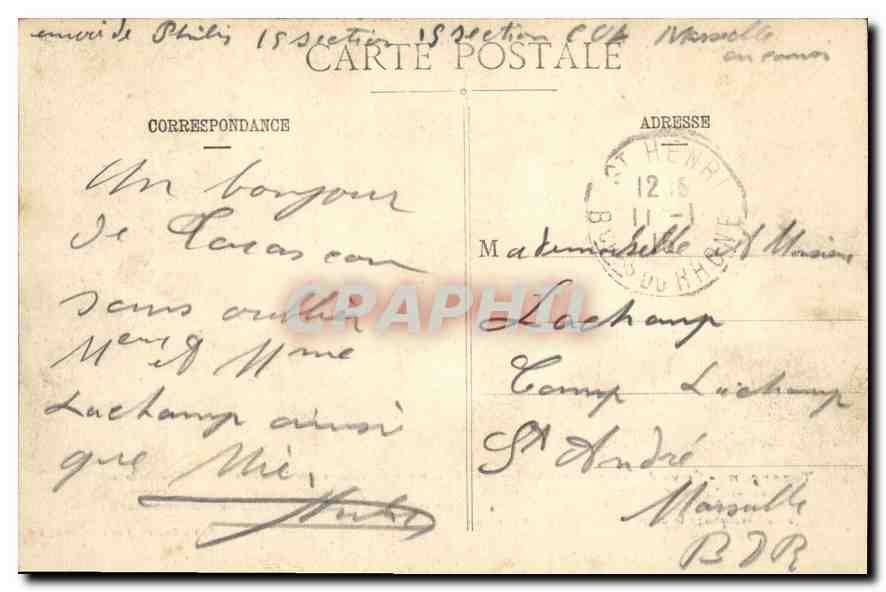 envoi de Philis 15 section 15 section COA Marseille
en convoi
CARTE POSTALE
CORRESPONDANCE
Un bonjour
de Tarascon
sans oublier
Meur et Mme
Lachamp ainsi
que
ADRESSE
ST HENRI
12 15
11 -1
BCHES DU RHONE
Mademoiselle et Monsieur
Lachamp
Camp Lachamp
St André
Marseille
BDR
CRAPHIL